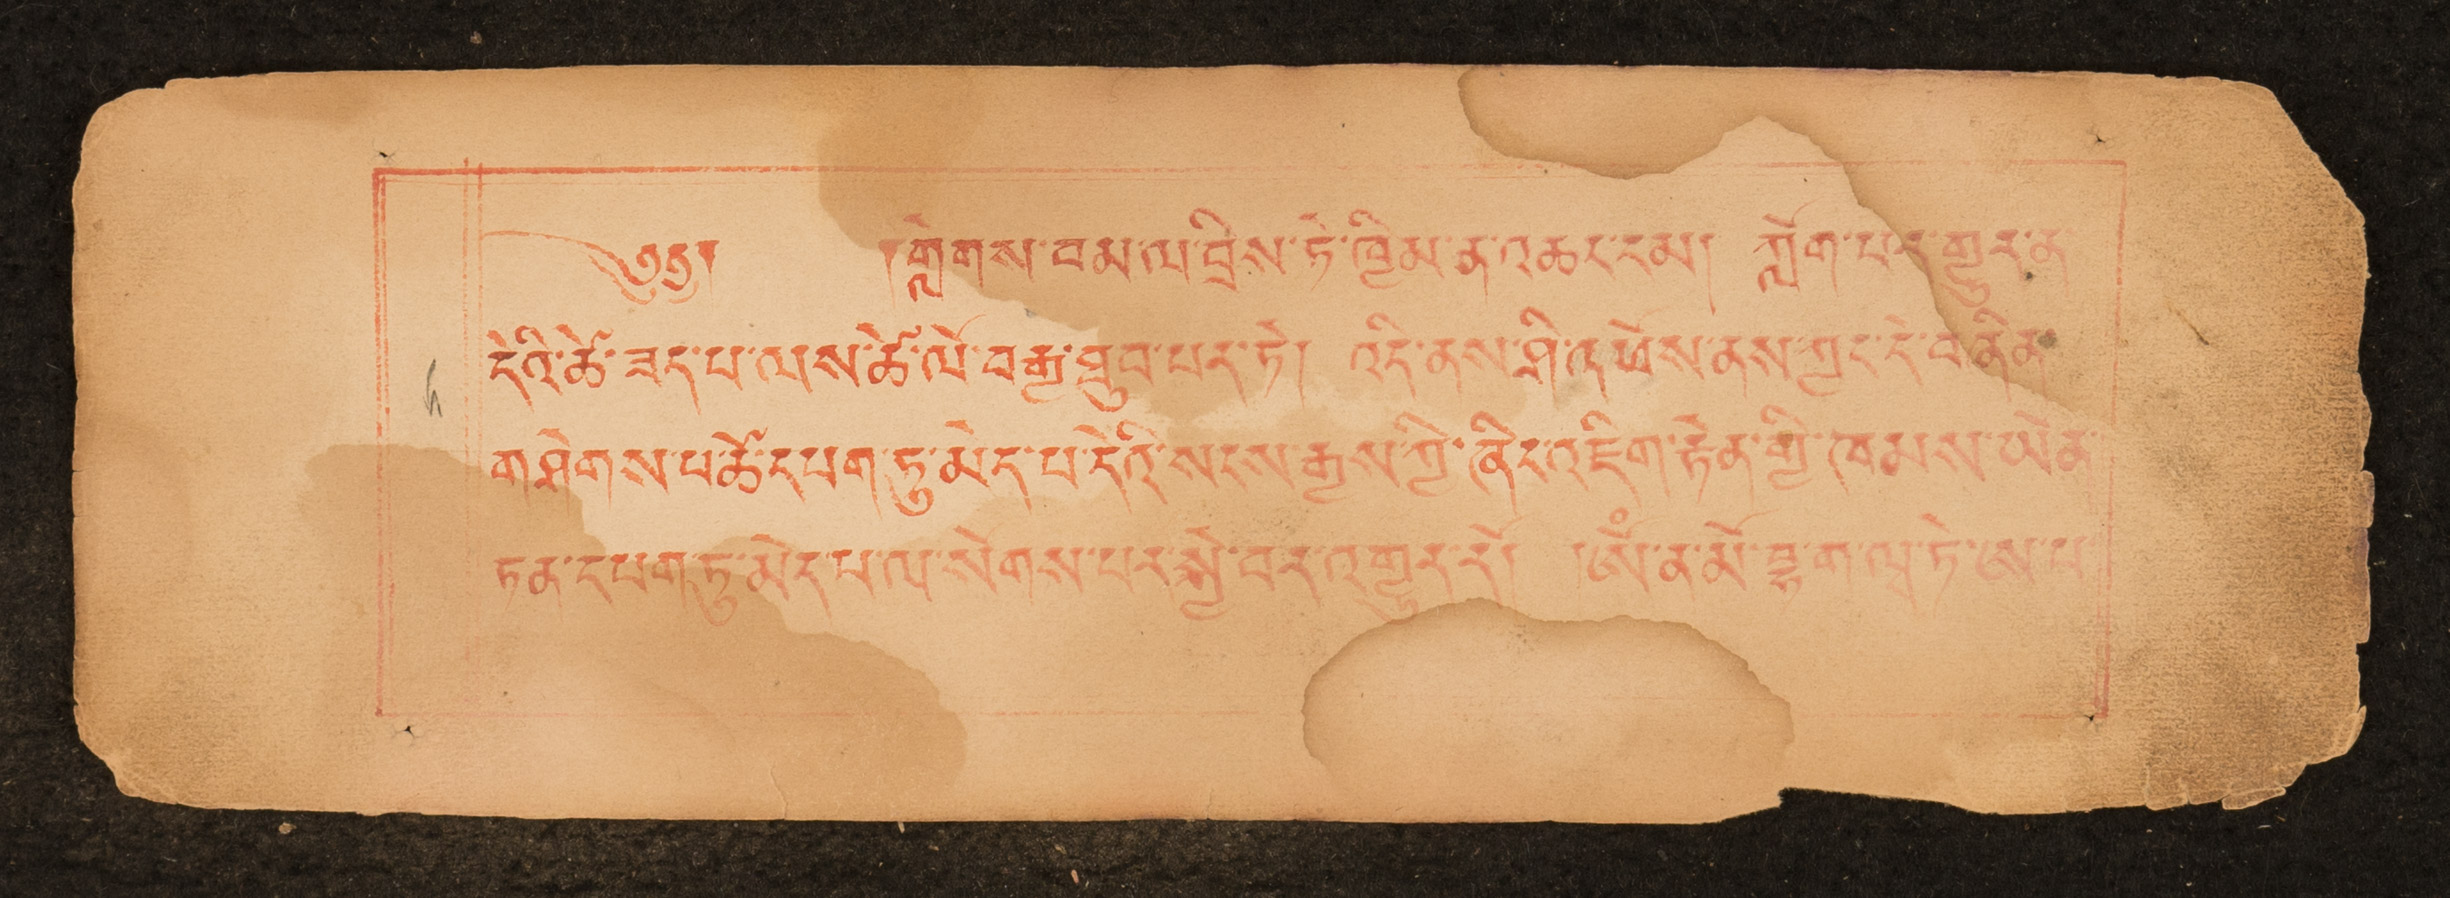 ༄༅། །གླེགས་བམ་ལ་བྲིས་ཏེ་ཁྱིམ་ན་འཆང་ངམ། ཀློག་པར་གྱུར་ན
དེའི་ཚེ་ཟད་པ་ལས་ཚེ་ལོ་བརྒྱ་ཐུབ་པར་ཏེ། འདི་ནས་ཤི་འཕོས་ནས་ཀྱང་དེ་བཞིན
གཤེགས་པ་ཚེ་དཔག་ཏུ་མེད་པ་དེའི་སངས་རྒྱས་ཀྱི་ཞིང་འཇིག་རྟེན་གྱི་ཁམས་ཡོན་
ཏན་དཔག་ཏུ་མེད་པ་ལ་སོགས་པར་སྐྱེ་བར་འགྱུར་རོ། །ཨོཾ་ན་མོ་བྷ་ག་ཝ་ཏེ་ཨ་པ་